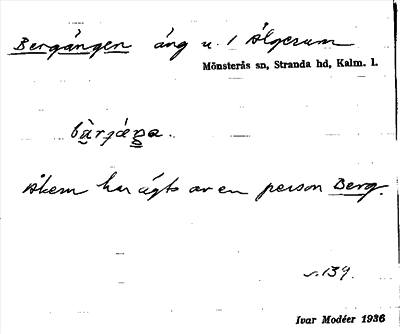 Bergången äng u. 1 Ålgerum
Mönsterås sn, Stranda hd, Kalm. l.
Åkern har ägts av en person Berg.
s. 139.
Ivar Modéer 1936